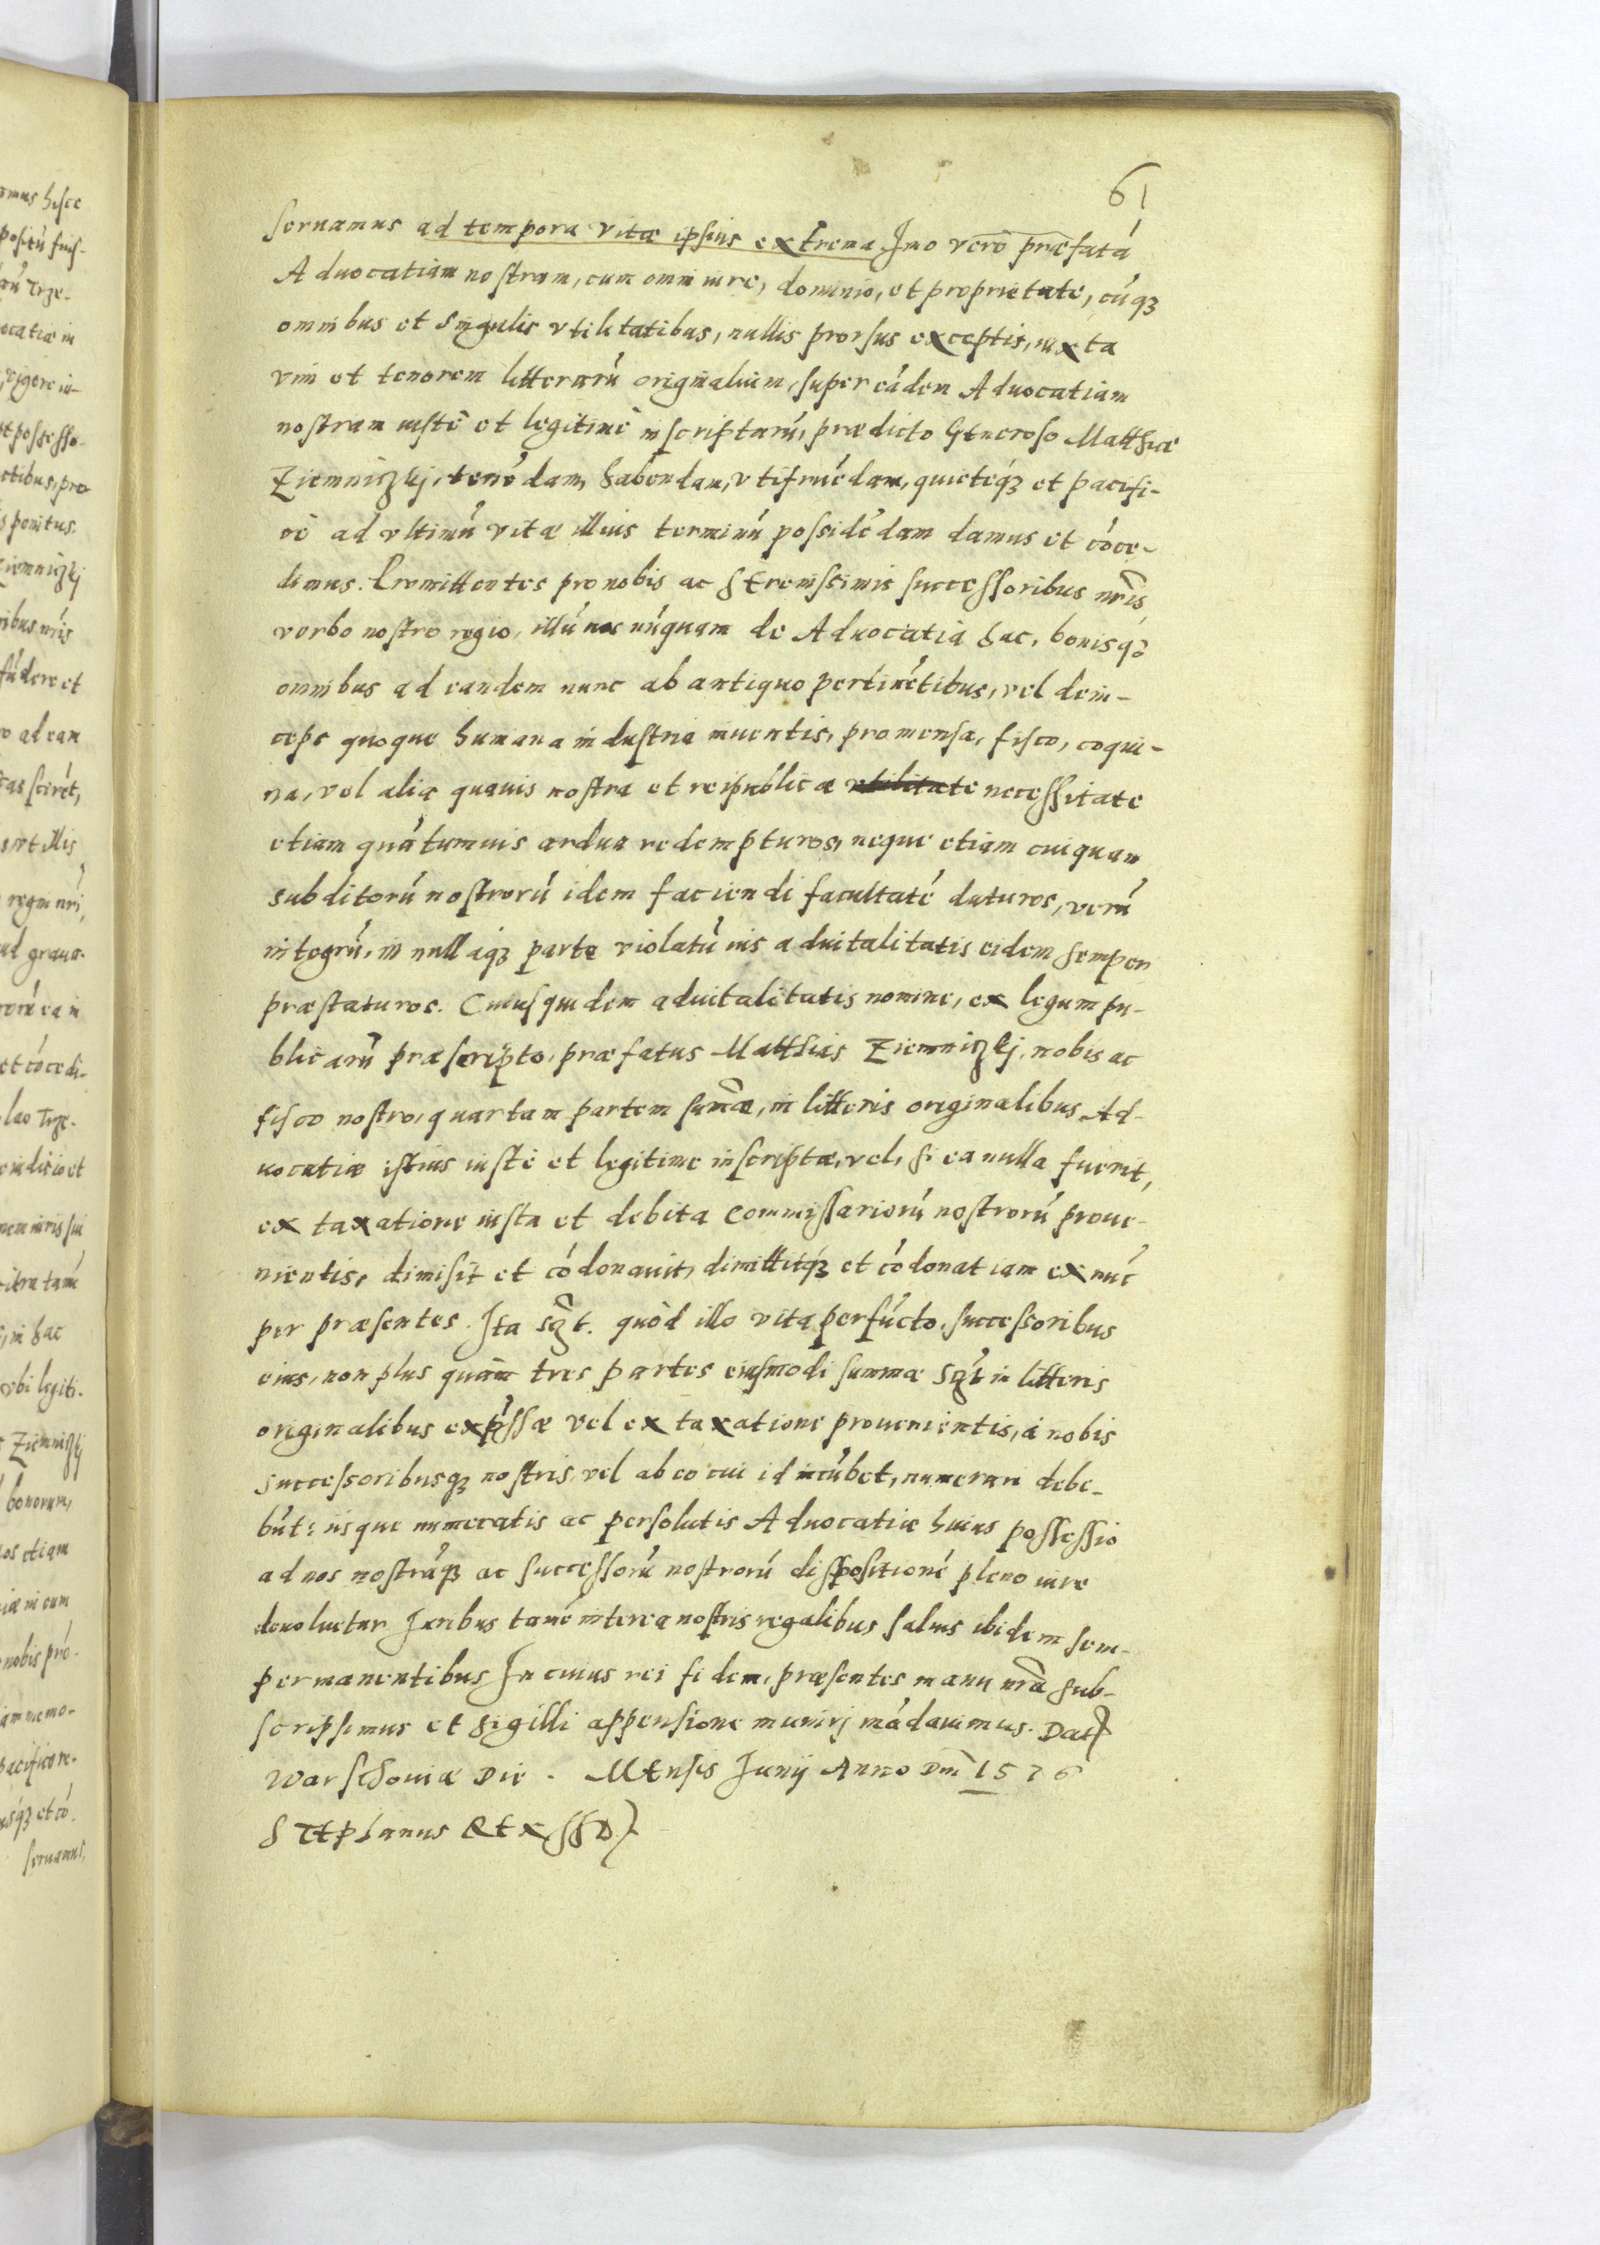 61
seruamus ad tempora vitæ ipsius extrema Imo vero præfatã
Aduocatiam nostram, cum omni iure, dominio, et proprietate, cũqz
omnibus et singulis vtilitatibus, nullis prorsus exceptis, iuxta
vim et tenorem litterarũ originalium, super eãdem Aduocatiam
nostram iustè et legitimè inscriptarũ, prædicto Generoso Matthiæ
Ziemniczkj, tenẽdam, habendam, vtifruẽdam, quietèqz et pacifi-
cè ad vltimũ vitæ illius terminũ possidẽdam damus et cõce-
dimus. Promittentes pro nobis ac Serenissimis successoribus nr̃is
verbo nostro regio, illũ nos nũquam de Aduocatia hac, bonisqz
omnibus ad eandem nunc ab antiquo pertinẽtibus, vel dein-
ceps quoque humana industria inuentis, pro mensa, fisco, coqui-
na, vel alia quauis nostra et reipublicæ vtilitate necessitate
etiam quãtumuis ardua redempturos, neque etiam cuiquam
subditorũ nostrorũ idem faciendi facultatẽ daturos, verũ
integrũ, in nullaqz parte violatũ ius aduitalitatis eidem semper
præstaturos. Cuiusquidem aduitalitatis nomine, ex legum pu-
blicarũ præscripto, præfatus Matthias Ziemniczkj, nobis ac
fisco nostro, quartam partem sum̃æ, in litteris originalibus Ad-
uocatiæ istius iustè et legitime inscriptæ, vel, si ea nulla fuerit,
ex taxatione iusta et debita Commissariorũ nostrorũ proue-
nientis, dimisit et cõdonauit, dimittitqz et cõdonat iam ex nũc
per præsentes. Ita sc̃z t. quòd illo vita perfũcto, successoribus
eius, non plus quàm tres partes eiusmodi summæ in litteris
originalibus exp̃ssæ vel ex taxatione prouenientis, à nobis
successoribusqz nostris, vel ab eo cui id incũbet, numerari debe-
bũt: iisque numeratis ac persolutis Aduocatiæ huius possessio
ad nos nostrãqz ac successorũ nostrorũ dispositionẽ pleno iure
deuoluetur Iuribus tamẽ interea nostris regalibus saluis ibidem sem-
per manentibus In cuius rei fidem, præsentes manu nr̃a sub-
scripsimus et sigilli appensione munirj mãdauimus. Dat
Warschouiæ Die . Mensis Iunij Anno Dnĩ 1576
Stephanus Rex SSD